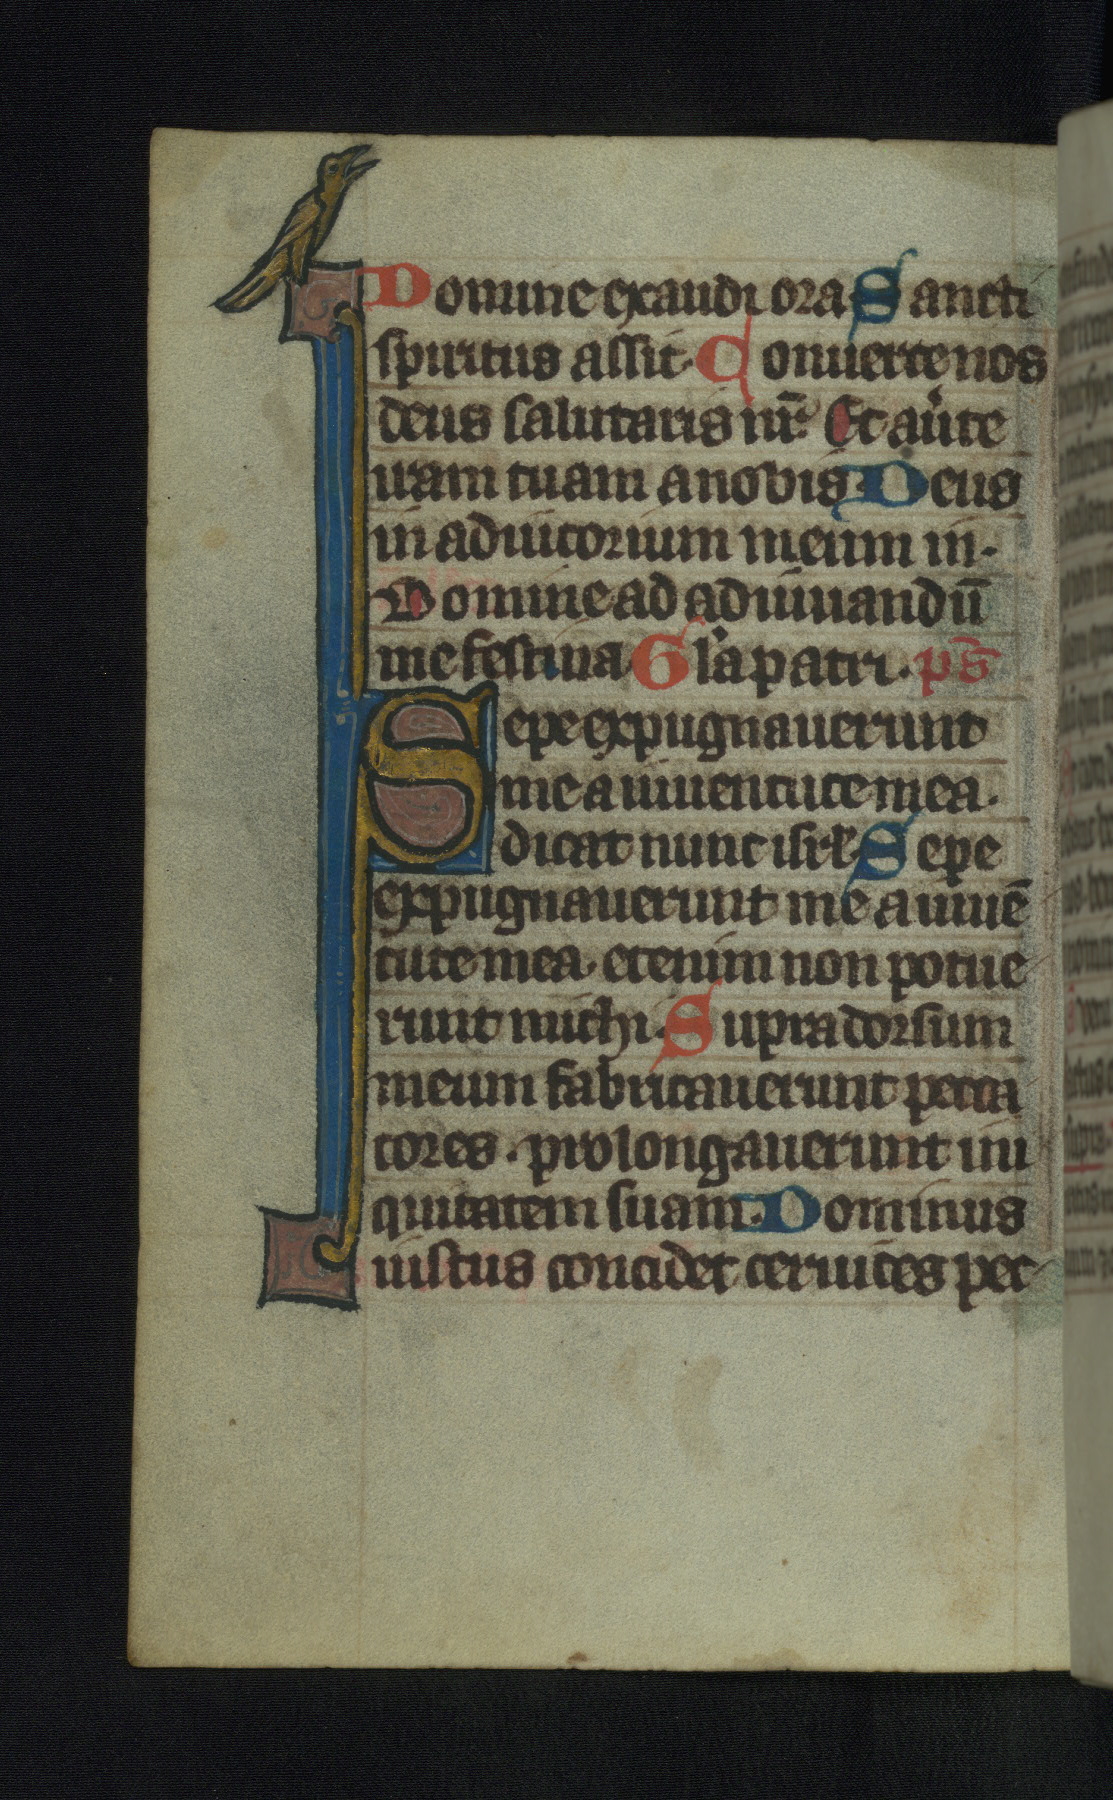 Domine exaudi ora Sancti
spiritus assit. Conuerte nos
deus salutaris nr̄. Et aūte
iram tuam a nobis. Deus
in adiutorium meum in.
Domine ad adiuuandū
me festina Gl'a patri. ps̄
Sepe expugnauerunt
me a iuuentute mea.
dicat nunc isrl' Sepe
expugnauerunt me a iuuē
tute mea. etenim non potue
runt michi. Supra dorsum
meum fabricauerunt pecca
tores. prolongauerunt ini
quitatem suam. Dominus
iustus concidet ceruices pec